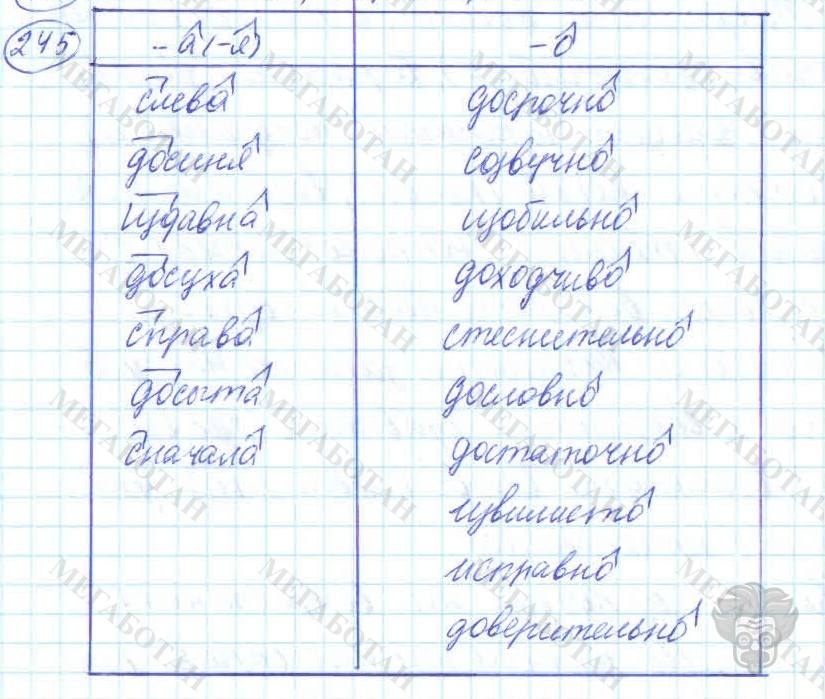 245
-а (-я) -о
слева досрочно
досиня созвучно
издавна изобильно
досуха доходчиво
справа стеснительно
досыта дословно
сначала достаточно
извилисто
исправно
доверительно
МЕГАБОТАН